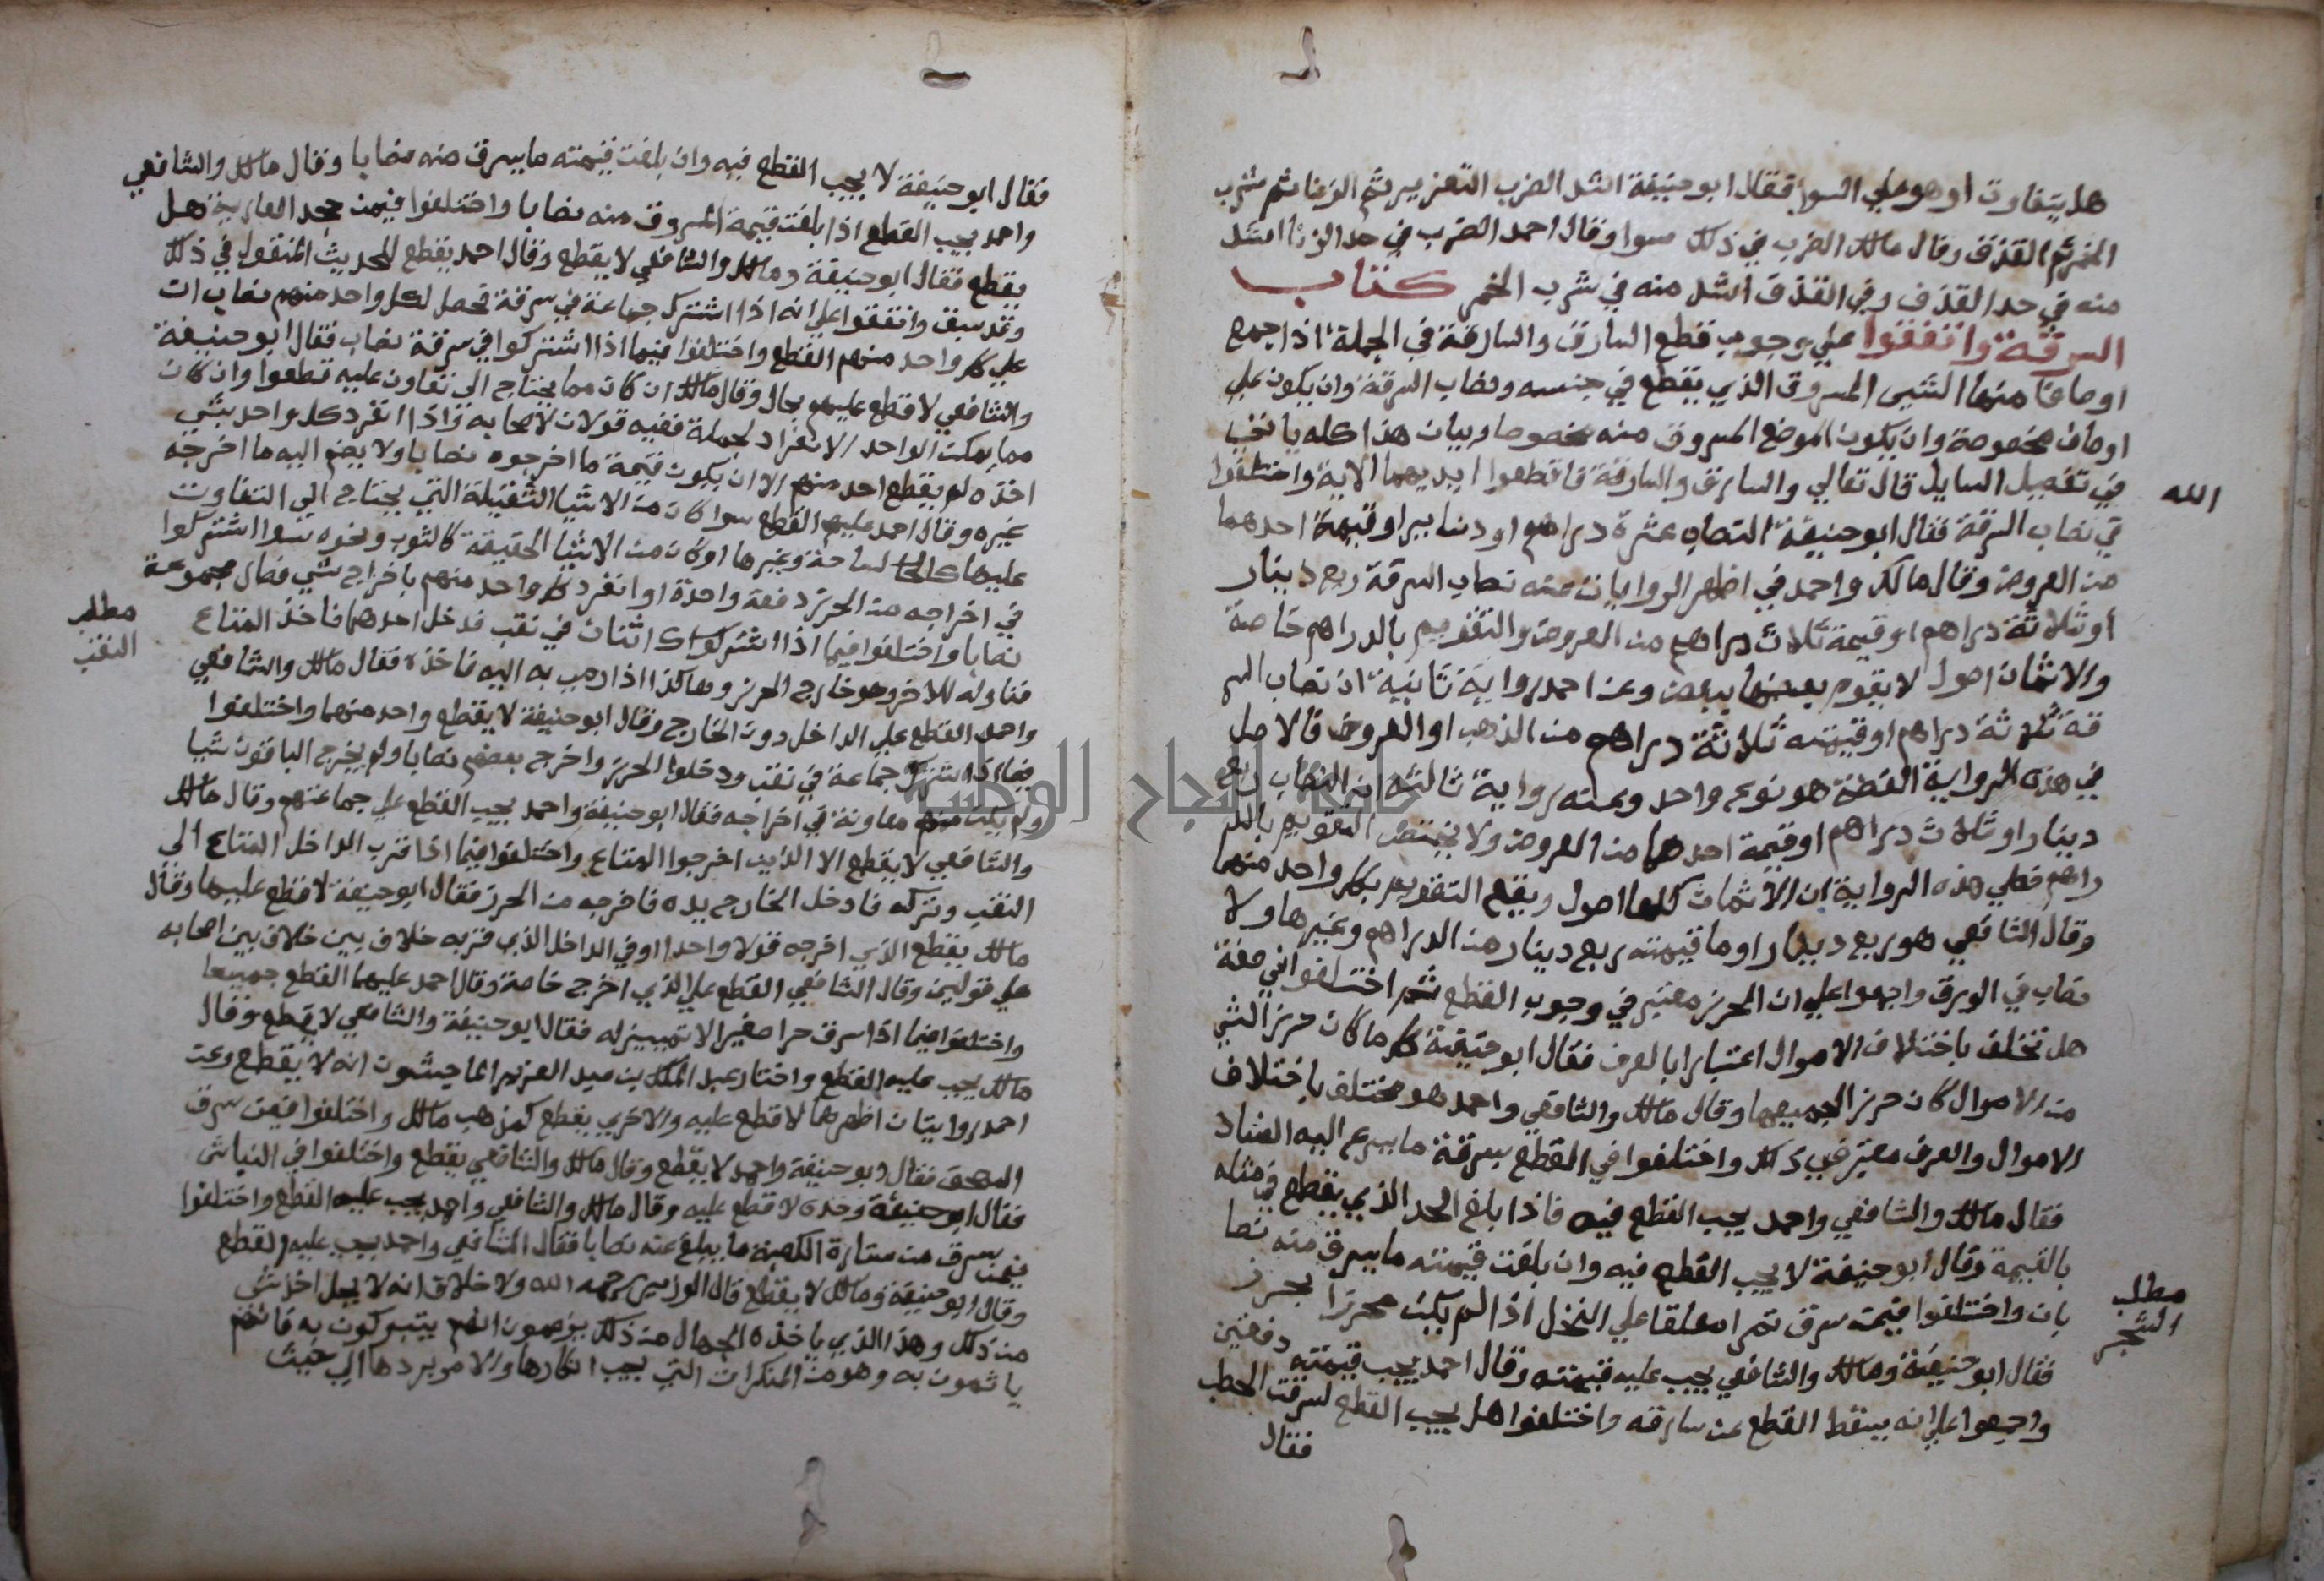 هل يتفاوت او هو علي السوا فقال ابو حنيفة اشد الضرب التعزير ثم الزنا ثم شرب
الخمر ثم القذف وقال مالك الضرب في ذلك سوا وقال احمد الضرب في حد الزنا اشد
منه في حد القذف وفي القذف اشد منه في شرب الخمر كتاب
السرقة واتفقوا علي وجوب قطع السارق والسارقة في الجملة اذا جمع
اوصافا منها الشيى المسروق الذي يقطع في جنسه ونصاب السرقة وان يكون علي
اوصاف مخصوصة وان يكون الموضع المسروق منه مخصوصا وبيان هذا كله ياتي
في تفصيل المسايل قال تعالي والسارق والسارقة فاقطعوا ايديهما الاية واختلفوا
الله
في نصاب السرقة فقال ابو حنيفة النصاب عشرة دراهم او دنانير او قيمة احدهما
من العروض وقال مالك واحمد في اظهر الروايات عنه نصاب السرقة ربع دينار
او ثلاثة دراهم او قيمة ثلاث دراهم من العروض والتقويم بالدراهم خاصة
والاثمان اصول لا يقوم بعضها ببعض وعن احمد رواية ثانية ان نصاب السر
قة ثلاثة دراهم او قيمته ثلاثة دراهم من الذهب او العروض فالاصل
في هذه الرواية الفضة هو نوع واحد وعنه رواية ثالثة ان النصاب ربع
دينار او ثلاث دراهم او قيمة احدهما من العروض ولا يختص التقويم بالد
راهم فعلي هذه الرواية ان الاثمان كلها اصول ويقع التقويم بكل واحد منهما
وقال الشافعي هو ربع دينار او ما قيمته ربع دينار من الدراهم وغيرها ولا
نصاب في الورق واجمعوا علي ان الحرز معتبر في وجوب القطع ثم اختلفوا في صفة
هل تختلف باختلاف الاموال اعتبارا بالعرف فقال ابو حنيفة كل ما كان حرز الشي
من الاموال كان حرز الجميعها وقال مالك والشافعي واحمد هو مختلف باختلاف
الاموال والعرف معتبر في ذلك واختلفوا في القطع بسرقة ما يسرع اليه الفساد
فقال مالك والشافعي واحمد يجب القطع فيه فاذا بلغ الحد الذي يقطع في مثله
بالقيمة وقال ابو حنيفة لا يجب القطع فيه وان بلغت قيمته ما يسرق منه نصا
بان واختلفوا فيمن سرق تمرا معلقا علي النخل اذا لم يكن محرزا بحرز
مطلب
الشجر
فقال ابو حنيفة ومالك والشافعي يجب عليه قيمته وقال احمد يجب قيمته دفعتين
واجمعوا علي انه يسقط القطع عن سارقه واختلفوا هل يجب القطع لسرقة الحطب
فقال
فقال ابو حنيفة لا يجب القطع فيه وان بلغت قيمته ما يسرق منه نصابا وقال مالك والشافعي
واحمد يجب القطع اذا بلغت قيمة المسروق منه نصابا واختلفوا فيمن جحد العارية هل
يقطع فقال ابو حنيفة ومالك والشافعي لا يقطع وقال احمد يقطع للحديث المنقول في ذلك
وقد سبق واتفقوا علي انه اذا اشترك جماعة في سرقة فحصل لكل واحد منهم نصاب ان
علي كل واحد منهم القطع واختلفوا فيما اذا اشتركوا في سرقة نصاب فقال ابو حنيفة
والشافعي لا قطع عليهم بحال وقال مالك ان كان مما يحتاج الي تعاون عليه قطعوا وان كان
مما يمكن الواحد الانفراد لحملة ففيه قولان لاصحابه واذا انفرد كل واحد بشي
اخذه لم يقطع احد منهم الا ان يكون قيمة ما اخرجوه نصابا ولا يضم اليه ما اخرجه
غيره وقال احمد عليهم القطع سوا كان من الاشيا الثقيلة التي يحتاج الي التعاون
عليها كالساحة وغيرها او كان من الاشيا الخفيفة كالثوب ونحوه سوا اشتركوا
في اخراجه من الحرز دفعة واحدة او انفرد كل واحد منهم باخراج شي فصال مجموعة
نصابا واختلفوا فيما اذا اشترك اثنان في نقب فدخل احدهما فاخذ المتاع
مطلب
النقب
فناوله للاخر وهو خارج الحرز وهاكذا اذا رمي به اليه فاخذه فقال مالك والشافعي
واحمد القطع علي الداخل دون الخارج وقال ابو حنيفة لا يقطع واحد منهما واختلفوا
فيما اذا اشترك جماعة في نقب ودخلوا الحرز واخرج بعضهم نصابا ولم يخرج الباقون شيا
ولم يكن منهم معاونة في اخراجه فقال ابو حنيفة واحمد يجب القطع علي جماعتهم وقال مالك
والشافعي لا يقطع الا الذين اخرجوا المتاع واختلفوا فيما اذا قرب الداخل المتاع الي
النقب وتركه فادخل الخارج يده فاخرجه من الحرز فقال ابو حنيفة لا قطع عليهما وقال
مالك يقطع الذي اخرجه قولا واحدا وفي الداخل الذي قربه خلاف بين خلاف بين اصحابه
علي قولين وقال الشافعي القطع علي الذي اخرج خاصة وقال احمد عليهما القطع جميعا
واختلفوا فيما اذا سرق حرا صغيرا لا تمييز له فقال ابو حنيفة والشافعي لا يقطع وقال
مالك يجب عليه القطع واختار عبد الملك بن عبد العزيز الماجيشون انه لا يقطع وعن
احمد روايتان اظهرهما لا قطع عليه والاخري يقطع كمذهب مالك واختلفوا فيمن سرق
المصحف فقال ابو حنيفة واحمد لا يقطع وقال مالك والشافعي يقطع واختلفوا في النباش
فقال ابو حنيفة وحده لا قطع عليه وقال مالك والشافعي واحمد يجب عليه القطع واختلفوا
فيمن سرق من ستارة الكعبة ما يبلغ عنه نصابا فقال الشافعي واحمد يجب عليه القطع
وقال ابو حنيفة ومالك لا يقطع قال الوزير رحمه الله ولا خلاق انه لا يحل اخذ شي
من ذلك وهذا الذي ياخذه الجهال من ذلك يزعمون انهم يتبركون به فانهم
ياثمون به وهو من المنكرات التي يجب انكارها والامر بردها الي حيث
جامعة النجاح الوطنية